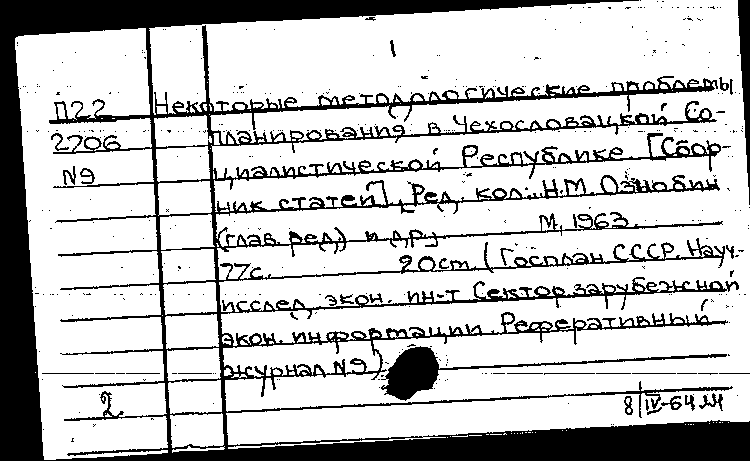 1
П22 Некоторые методологические проблемы
2706 планирования в Чехословацкой Со-
N9 циалистической Республике. [Сбор-
ник статей]. Ред. кол.: Н.М. Ознобин
(глав. ред.) и др.
М., 1963.
77с. 20см. (Госплан СССР. Науч.-
исслед. экон. ин-т Сектор зарубежной
экон. информации. Реферативный
журнал N9)
2. 8/IV-64